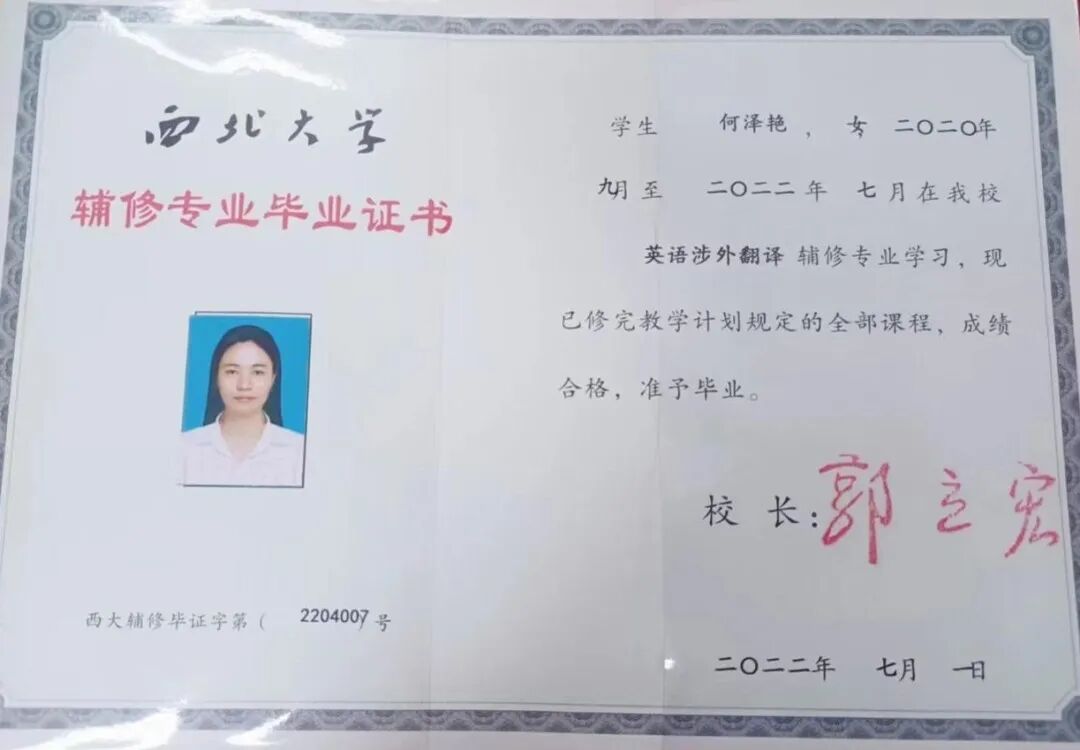 西北大学
辅修专业毕业证书
西大辅修毕证字第（ 2204007）号
学生 何泽艳 ， 女， 二〇二〇年
九月至 二〇二二年 七月在我校
英语涉外翻译 辅修专业学习，现
已修完教学计划规定的全部课程，成绩
合格，准予毕业。
校 长：郭立宏
二〇二二年 七月 一日